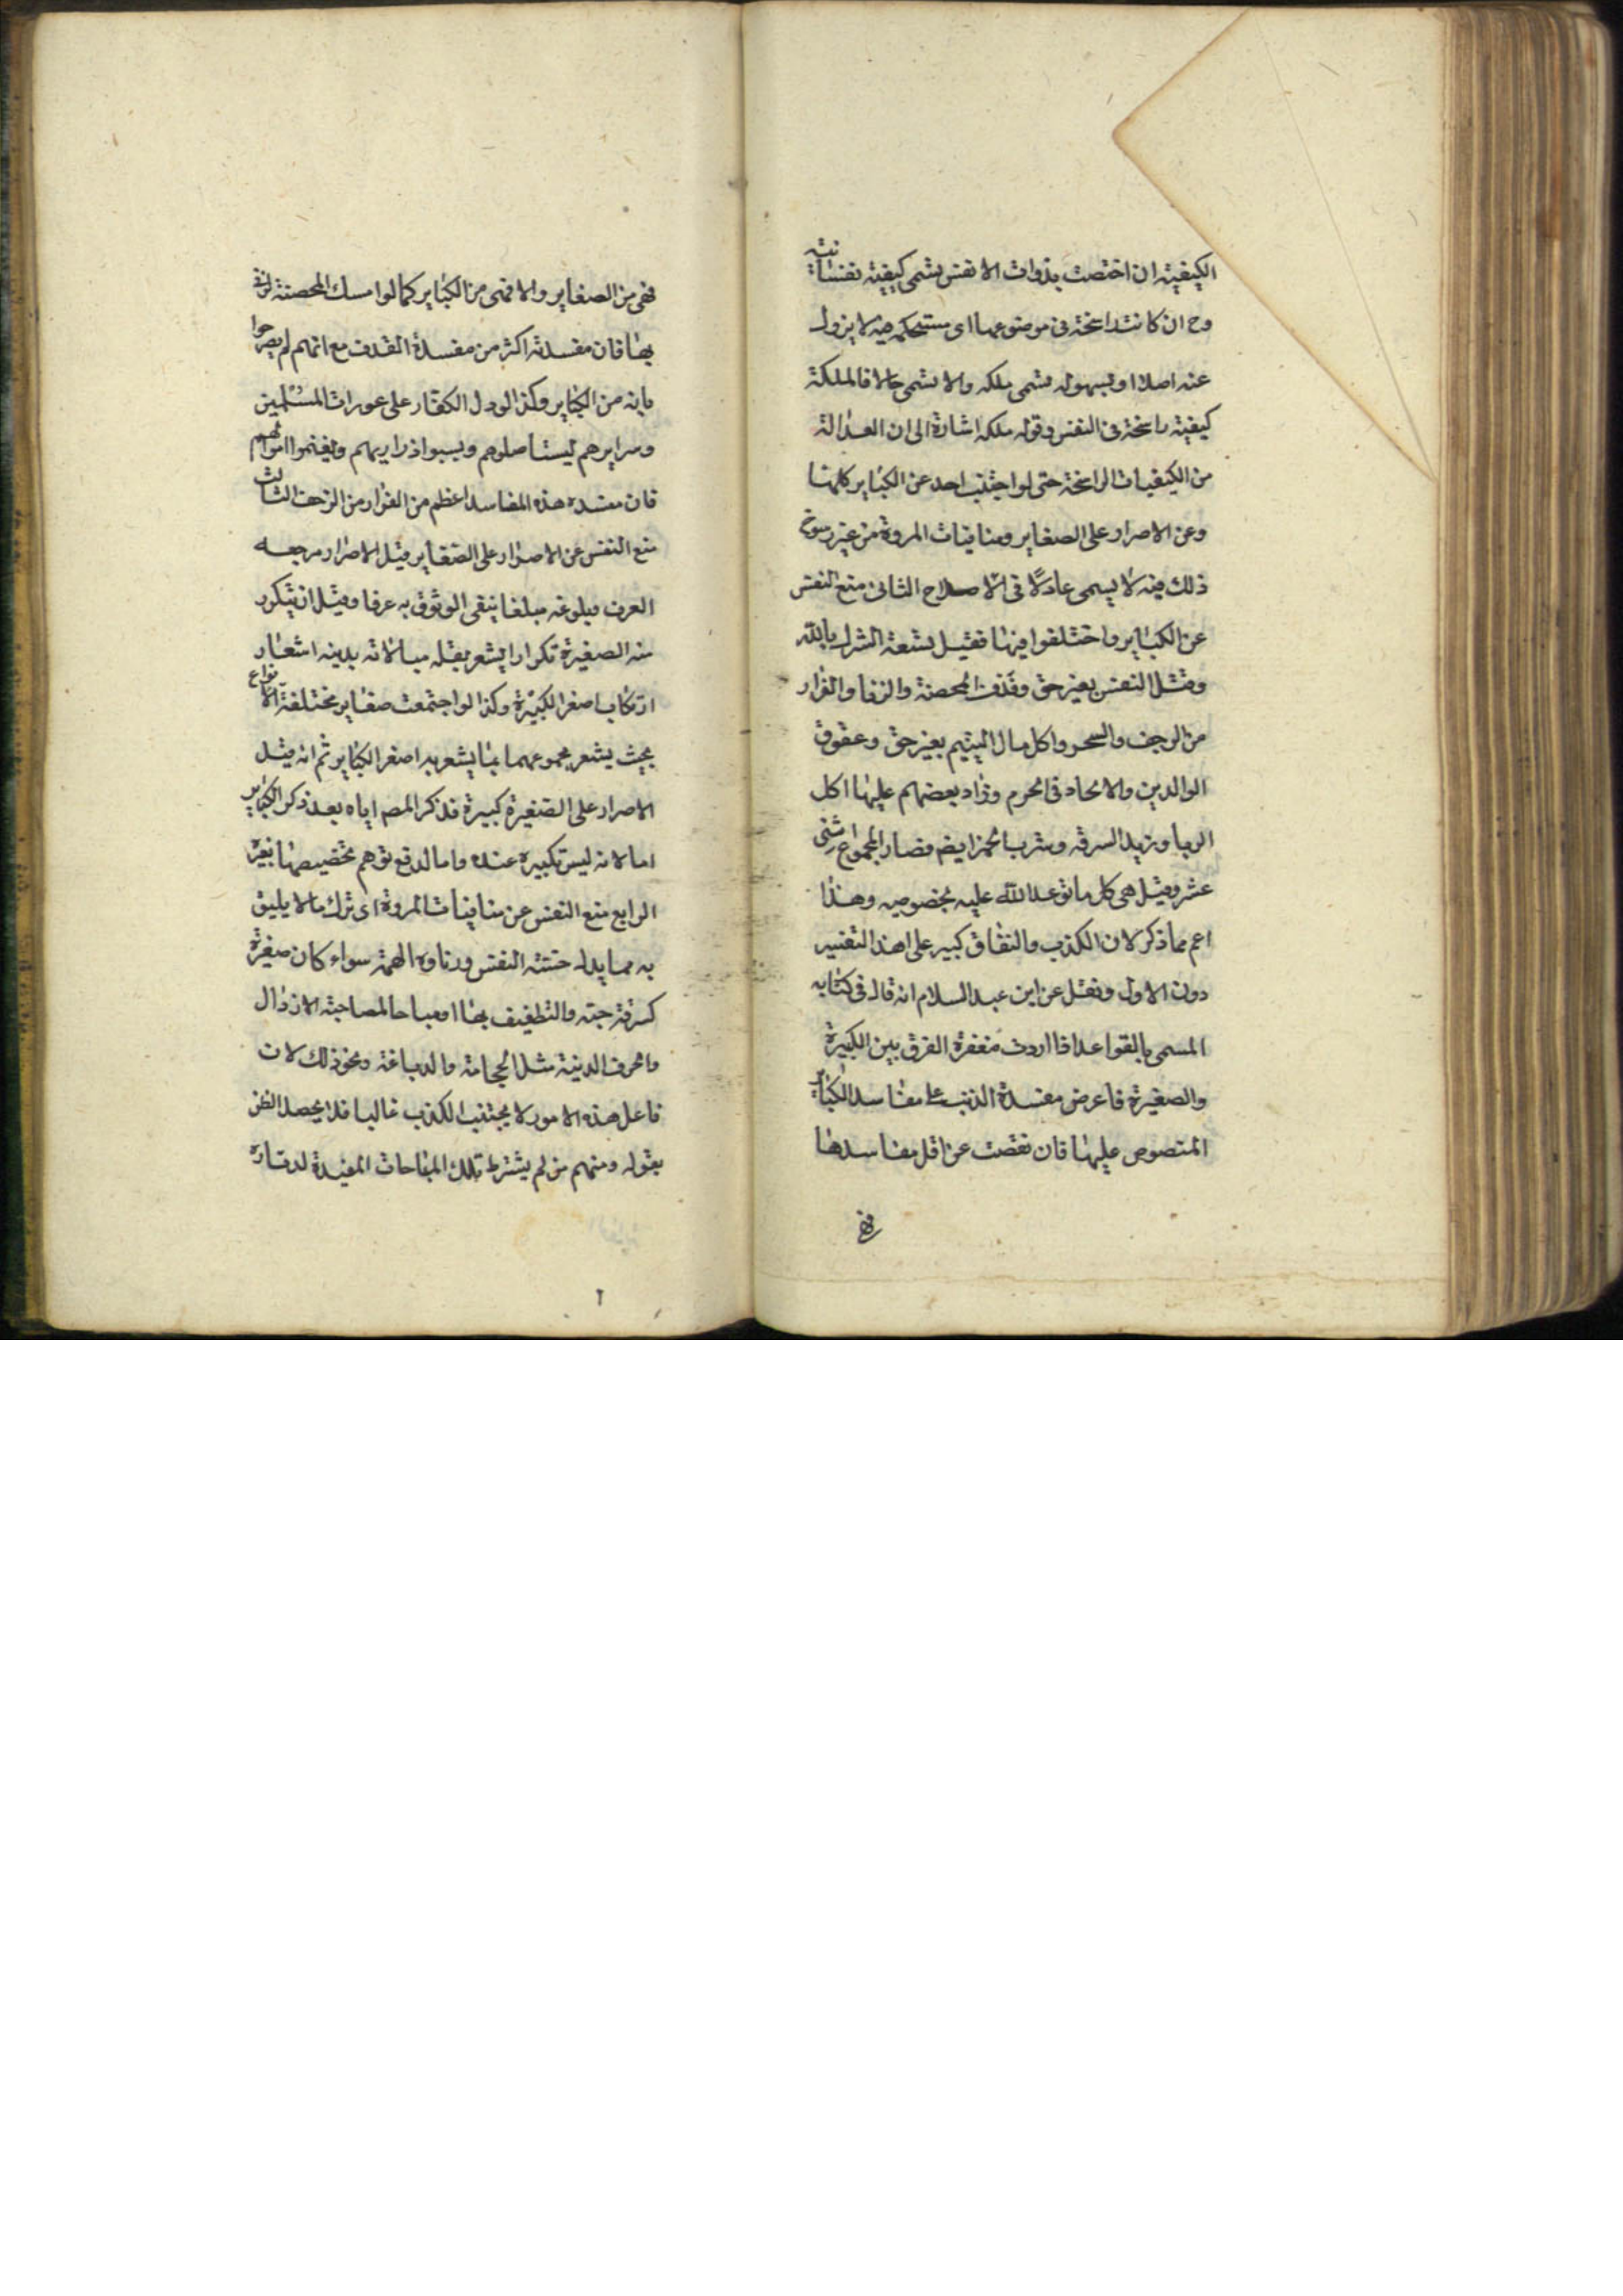 الكيفية ان اختصت بذوات الانفس يسمى كيفية نفسانية
وح ان كانت راسخة فى موضوعها اى مستحكمة فيه لا يزول
عنه اصلا او بسهولة يسمى ملكه والا يسمى حالا فالملكة
كيفية راسخة فى النفس وقوله ملكه اشارة الى ان العدالة
من الكيفيات الراسخة حتى لو اجتنب احد عن الكباير كلها
وعن الاصرار على الصغاير ومنافيات المروة من غير رسوخ
ذلك فيه لا يسمى عادلا فى الاصلاح الثانى منع النفس
عن الكباير واختلفوا فيها فقيل تسعة الشرك بالله
وقتل النفس بغير حق وقذف المحصنة والزنا والفرار
من الزحف والسحر واكل مال اليتيم بغير حق وعقوق
الوالدين والالحاد فى الحرم وزاد بعضهم عليها اكل
الربا وزيد السرقه وشرب الخمر ايضم فصار المجموع اثنى
عشر وقيل هى كل ما توعد الله عليه بخصوصه وهذا
اعم مما ذكر لان الكذب والنفاق كبير على هذا التفسير
دون الاول ونقل عن ابن عبد السلام انه قال فى كتابه
المسمى بالقواعد اذا اردت مغفرة الفرق بين الكبيرة
والصغيرة فاعرض مفسدة الذنب على مفاسد الكباير
المنصوص عليها فان نقصت عن اقل مفاسدها
فهى
فهى من الصغاير والا فهى من الكباير كما لو امسك المحصنة لزنى
بها فان مفسدته اكثر من مفسدة القذف مع انهم لم يصرحوا
بانه من الكباير وكذا لو دل الكفار على عورات المسلمين
وسرايرهم ليستاصلوهم ويسبوا ذراريهم ويغنموا اموالهم
فان مفسدة هذه المفاسد اعظم من الفرار من الزحف الثالث
منع النفس عن الاصرار على الصغاير قيل الاصرار مرجعه
العرف وبلوغه مبلغا ينفى الوثوق به عرفا وقيل ان يتكرر
منه الصغيرة تكرارا يشعر بقله مبالاته بدينه اشعار
ارتكاب اصغر الكبيرة وكذا لو اجتمعت صغاير مختلفة الانواع
بحيث يشعر مجموعهما بما يشعر به اصغر الكباير ثم انه قيل
الاصرار على الصغيرة كبيرة فذكر المصم اياه بعد ذكر الكباير
اما لانه ليس بكبيره عنده واما لدفع توهم تخصيصها بغيره
الرابع منع النفس عن منافيات المروة اى ترك ما لا يليق
به مما يدل خسته النفس ودناوة الهمة سواء كان صغيرة
كسرقة حبته والتطفيف بها او مباحا لمصاحبته الارذال
والحرف الدنية مثل الحجامة والدباغة ونحو ذلك لان
فاعل هذه الامور لا يجتنب الكذب غالبا فلا يحصل الظن
بقوله ومنهم من لم يشترط تلك المباحات المفيدة لدقاره